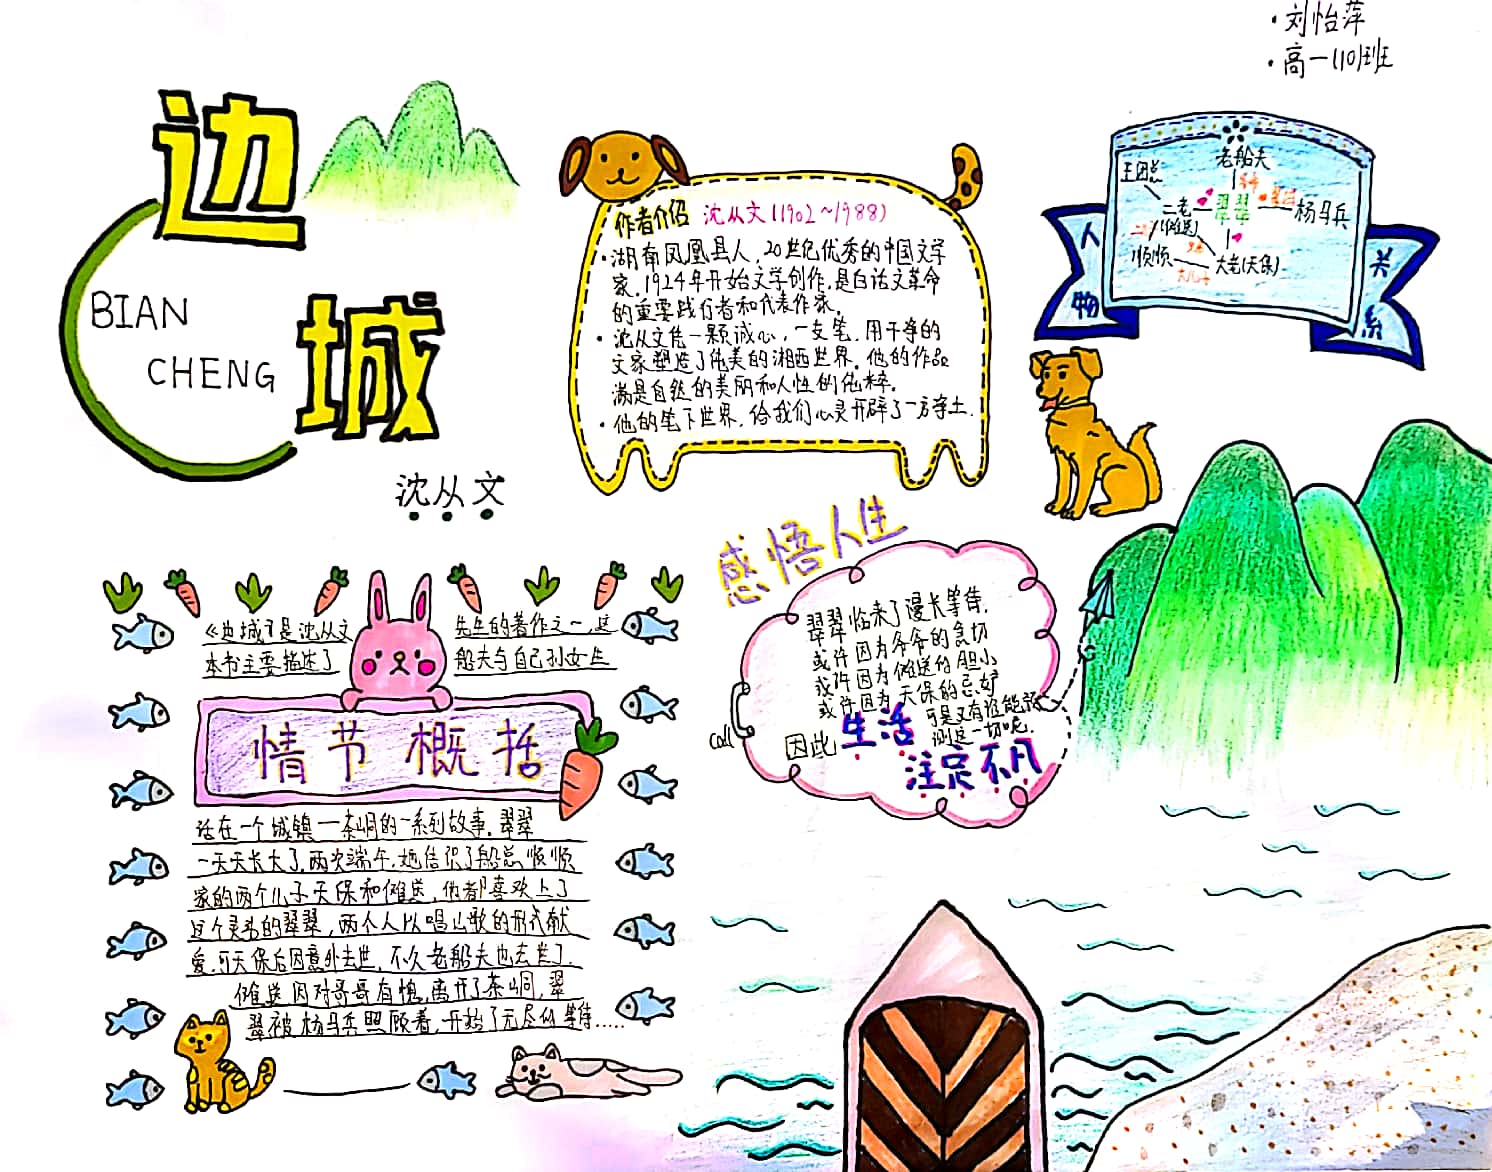 ·刘怡萍
·高一(10)班
边
BIAN
CHENG
城
沈从文
作者介绍 沈从文(1902~1988)
·湖南凤凰县人,20世纪优秀的中国文学
家,1924年开始文学创作,是白话文革命
的重要践行者和代表作家。
·沈从文凭一颗诚心,一支笔,用干净的
文字塑造了优美的湘西世界。他的作品
满是自然的美丽和人性的优粹。
·他的笔下世界,给我们心灵开辟了一方净土.
人物
关系
老船夫
王团总
爷爷
二老
(傩送)
翠翠
杨马兵
顺顺
大老(天保)
大儿子
感悟人生
翠翠临来了漫长等待,
或许因为爷爷的急切
或许因为傩送的胆小
或许因为天保的忌妒
可是又有谁能预
测这一切呢.
因此 生活
注定不凡
call
《边城》是沈从文先生的著作之一,这
本书主要描述了船夫与自己孙女生
情节概括
活在一个城镇—茶峒的一系列故事。翠翠
一天天长大了,两次端午,她结识了船总顺顺
家的两个儿子天保和傩送,他都喜欢上了
这个灵秀的翠翠,两个人以唱山歌的形式献
爱,可天保后因意外去世,不久老船夫也去世了.
傩送因对哥哥有愧,离开了茶峒,翠
翠被杨马兵照顾着,开始了无尽似等待......